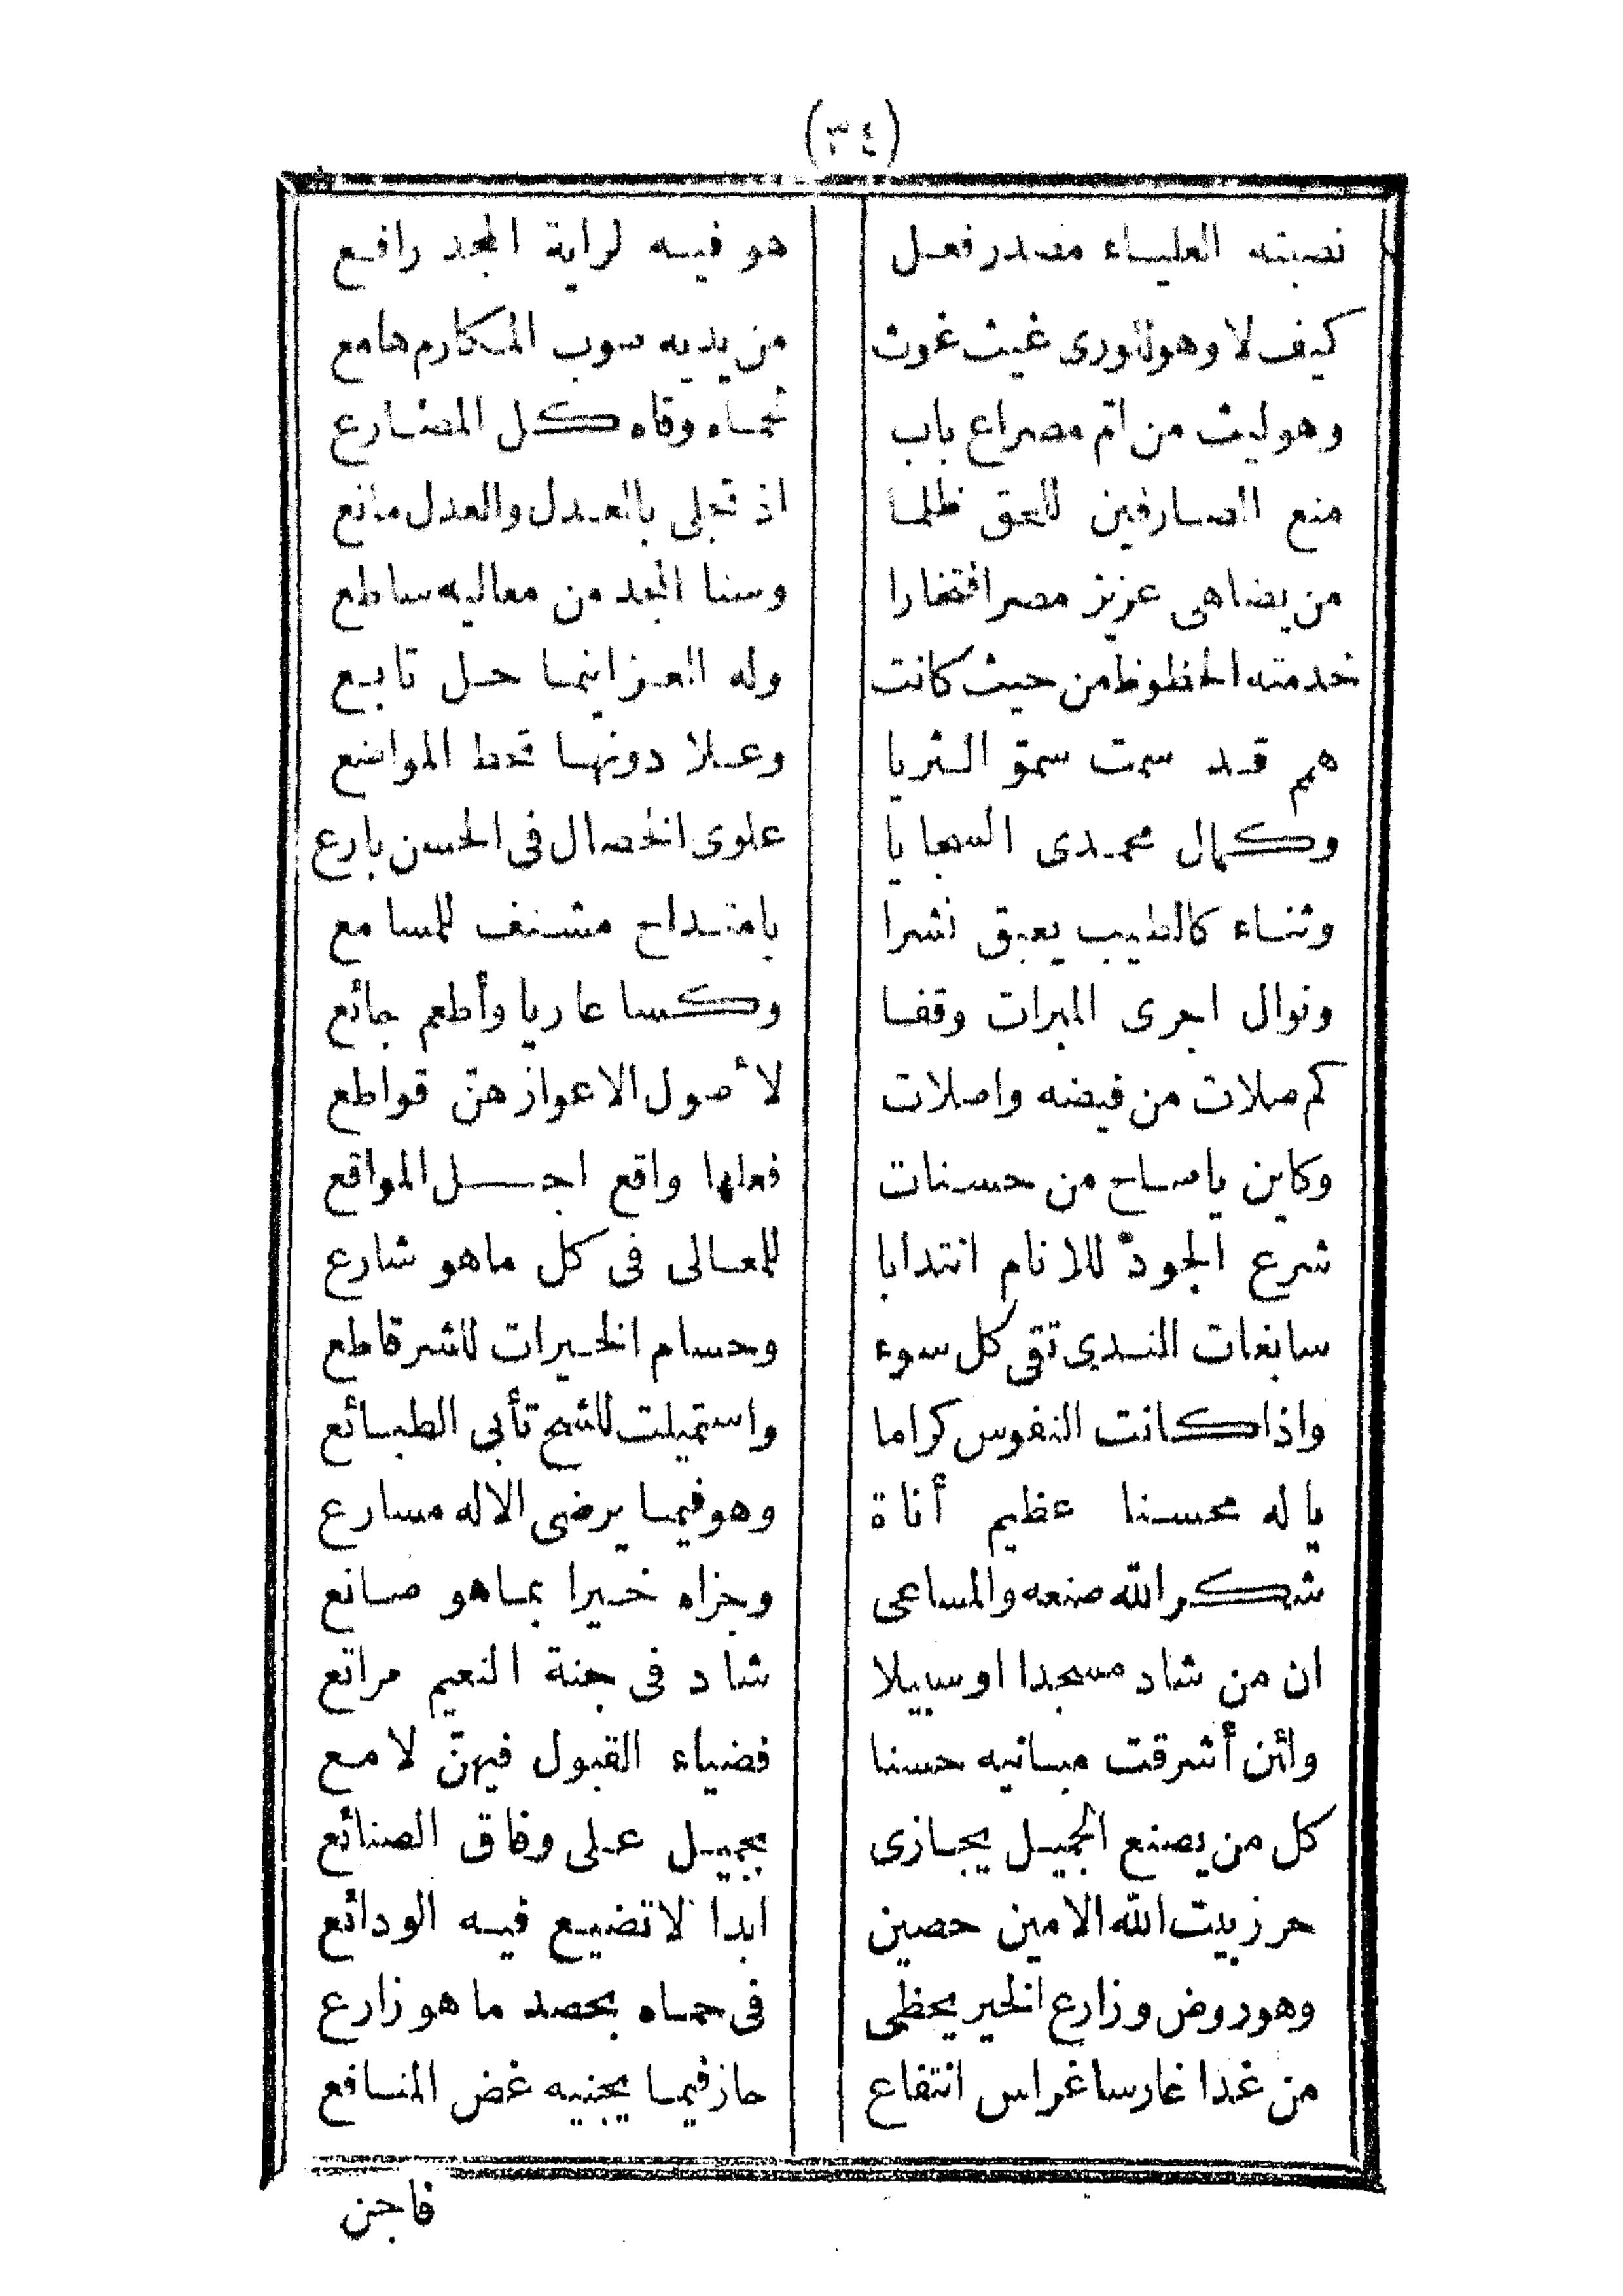 (٣٤)
نصبته العلياء مصدر فعل هو فيه لراية المجد رافع
كيف لا وهو للورى غيث غوث من يديه سوب المكارم هامع
وهو ليث من امّ مصراع باب لحماه وقاه كل المضارع
منع الصارفين للحق ظلما اذ تحلى بالعدل والعدل مانع
من يضاهى عزيز مصر افتخارا وسنا المجد من معاليه ساطع
خدمته الحظوظ من حيث كانت وله العز اينما حل تابع
همم قد سمت سموّ الثريا وعلا دونها تحط المواضع
وكمال محمدى السجايا علوى الخصال فى الحسن بارع
وثناء كالطيب يعبق نشرا بامتداح مشنف للمسامع
ونوال اجرى المبرات وقفا وكسا عاريا وأطعم جائع
كم صلات من فيضه واصلات لأصول الاعواز هنّ قواطع
وكاين ياصاح من حسنات فعلها واقع اجل المواقع
شرع الجود للانام انتدابا للمعالى فى كل ماهو شارع
سابغات الندى تقى كل سوء وحسام الخيرات للشر قاطع
واذا كانت النفوس كراما واستميلت للشح تأبى الطبائع
ياله محسنا عظيم أناة وهو فيما يرضى الاله مسارع
شكر الله صنعه والمساعى وجزاه خيرا بماهو صانع
ان من شاد مسجدا او سبيلا شاد فى جنة النعيم مراتع
ولئن أشرقت مبانيه حسنا فضياء القبول فيهنّ لامع
كل من يصنع الجميل يجازى بجميل على وفاق الصنائع
حرز بيت الله الامين حصين ابدا لاتضيع فيه الودائع
وهو روض وزارع الخير يحظى فى حماه بحصد ما هو زارع
من غدا غارسا غراس انتفاع حاز فيما يجنيه غض المنافع
فاجن